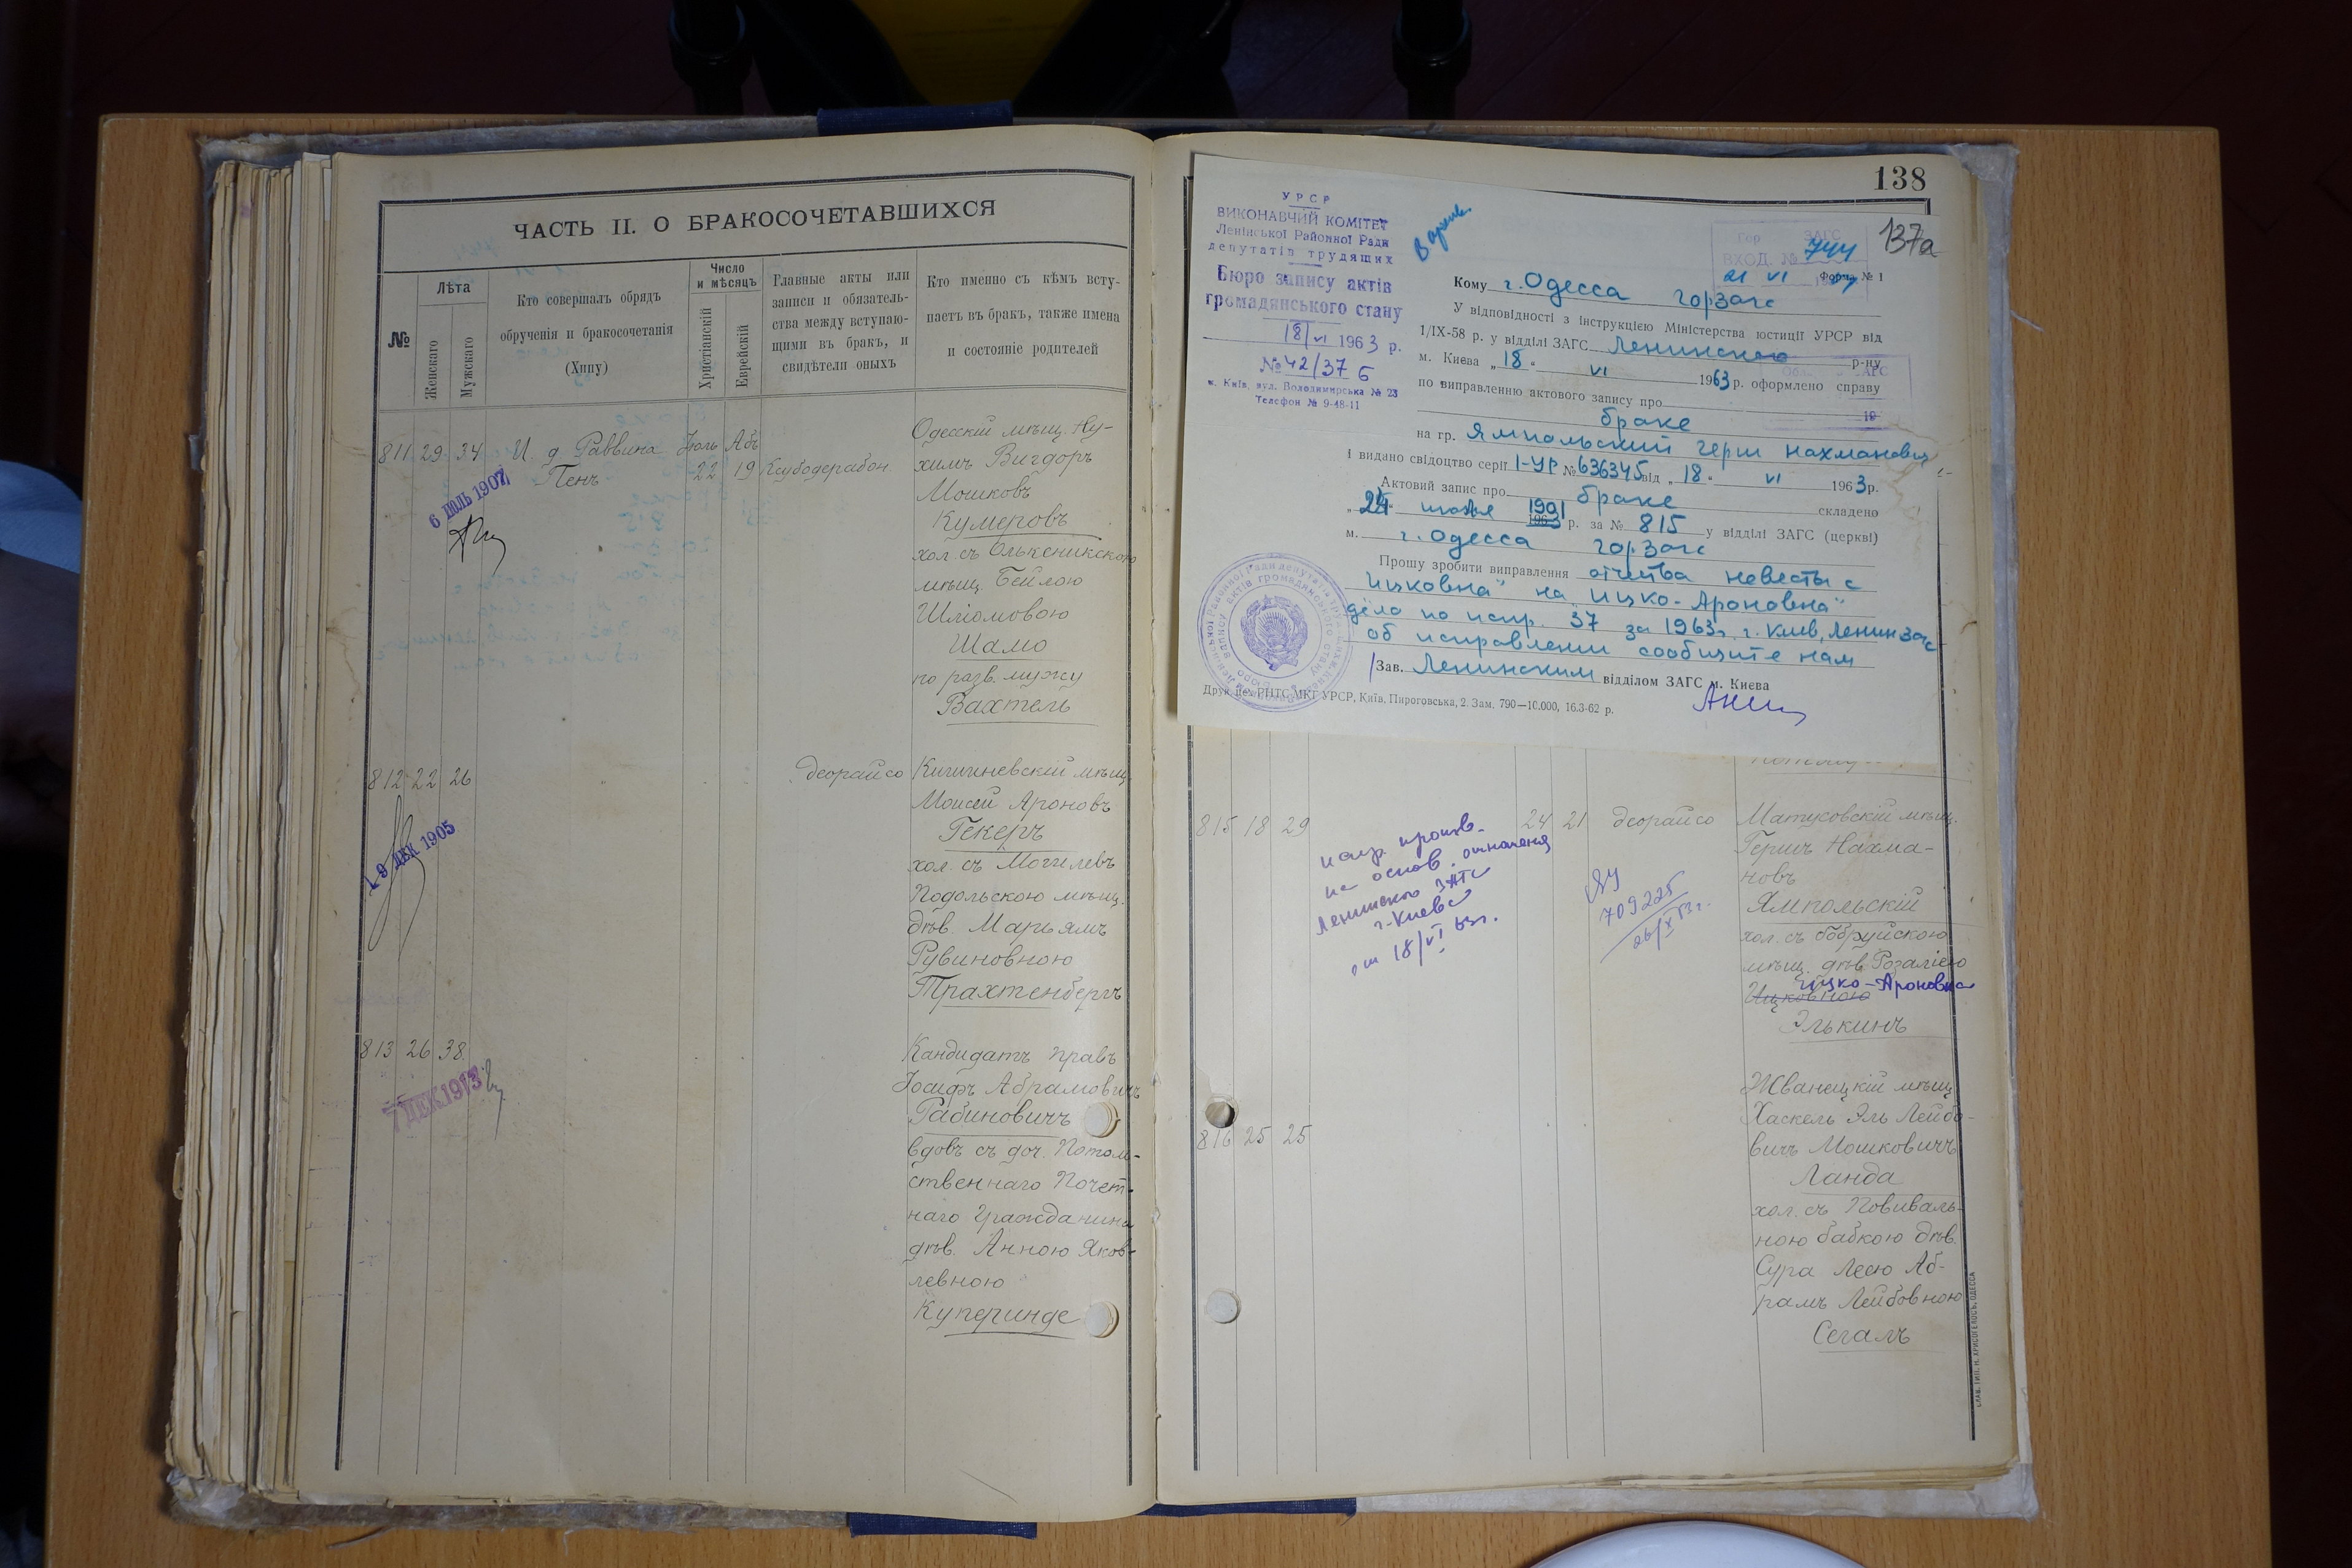 ЧАСТЬ II. О БРАКОСОЧЕТАВШИХСЯ
№
Лѣта
Женскаго
Мужскаго
Кто совершалъ обрядъ
обрученія и бракосочетанія
(Хипу)
Число
и мѣсяцъ
Христіанскій
Еврейскій
Главные акты или
записи и обязатель-
ства между вступаю-
щими въ бракъ, и
свидѣтели оныхъ
Кто именно съ кѣмъ всту-
паетъ въ бракъ, также имена
и состояніе родителей
811 29 34 И. д. Раввина Пенъ Іюль 22 Абъ 19
6 ІЮЛЬ 1907
Одесскій мѣщ. Ну-
химъ Вигдоръ
Мошковъ
Кумеровъ
хол. съ Олькеникскою
мѣщ. Бейлою
Шліомовою
Шамо
по разв. мужу
Вахтель
812 22 26 деорайсо
9 ДЕК 1905
Кишиневскій мѣщ.
Моисей Ароновъ
Гекеръ
хол. съ Могилевъ
Подольскою мѣщ.
дѣв. Марьямъ
Рувиновною
Трахтенбергъ
813 26 38
7 ДЕК 1913
Кандидатъ правъ
Іосифъ Абрамовичъ
Рабиновичъ
вдовъ съ доч. Потом-
ственнаго Почет-
наго Гражданина
дѣв. Анною Яков-
левною
Куперинде
138
137а
УРСР
ВИКОНАВЧИЙ КОМІТЕТ
Ленінської Районної Ради
депутатів трудящих
Бюро запису актів
громадянського стану
18/VI 1963 р.
№ 42/37 б
м. Київ, вул. Володимирська № 23
Телефон № 9-48-11
Гор ЗАГС
ВХОД. № 744
21 VI
Форма № 1
Кому г. Одесса горзагс
У відповідності з інструкцією Міністерства юстиції УРСР від
1/IX-58 р. у відділі ЗАГС Ленинского р-ну
м. Києва „18“ VI 1963 р. оформлено справу
по виправленню актового запису про
браке
на гр. Ямпольский Герш Нахманович
і видано свідоцтво серії I-УР № 636345 від „18“ VI 1963 р.
Актовий запис про браке складено
„24“ июля 1901 р. за № 815 у відділі ЗАГС (церкві)
м. г. Одесса горзагс
Прошу зробити виправлення отчества невесты с
Ицковна" на „Ицко-Ароновна"
дело по испр. 37 за 1963г. г. Киев, Ленинзагс
об исправлении сообщите нам
Зав. Ленинским відділом ЗАГС м. Києва
Друк. цех РПТС МКГ УРСР, Київ, Пироговська, 2. Зам. 790—10.000, 16.3-62 р.
815 18 29 24 21 деорайсо
испр. произв.
на основ.
Ленинского ЗАГС
г. Киева
от 18/VI 63г.
709225
26/X
Матусовскій мѣщ.
Гершъ Нахма-
новъ
Ямпольскій
хол. съ бобруйскою
мѣщ. дѣв. Розаліею
Ицко-Ароновна
Ицковною
Элькинъ
816 25 25
Жванецкій мѣщ.
Хаскель Эль Лейбо-
вичъ Мошковичъ
Ланда
хол. съ Повиваль-
ною бабкою дѣв.
Сура Лею Аб-
рамъ Лейбовною
Сегалъ
СЛАВ. ТИП. Н. ХРИСОГЕЛОСЪ, ОДЕССА